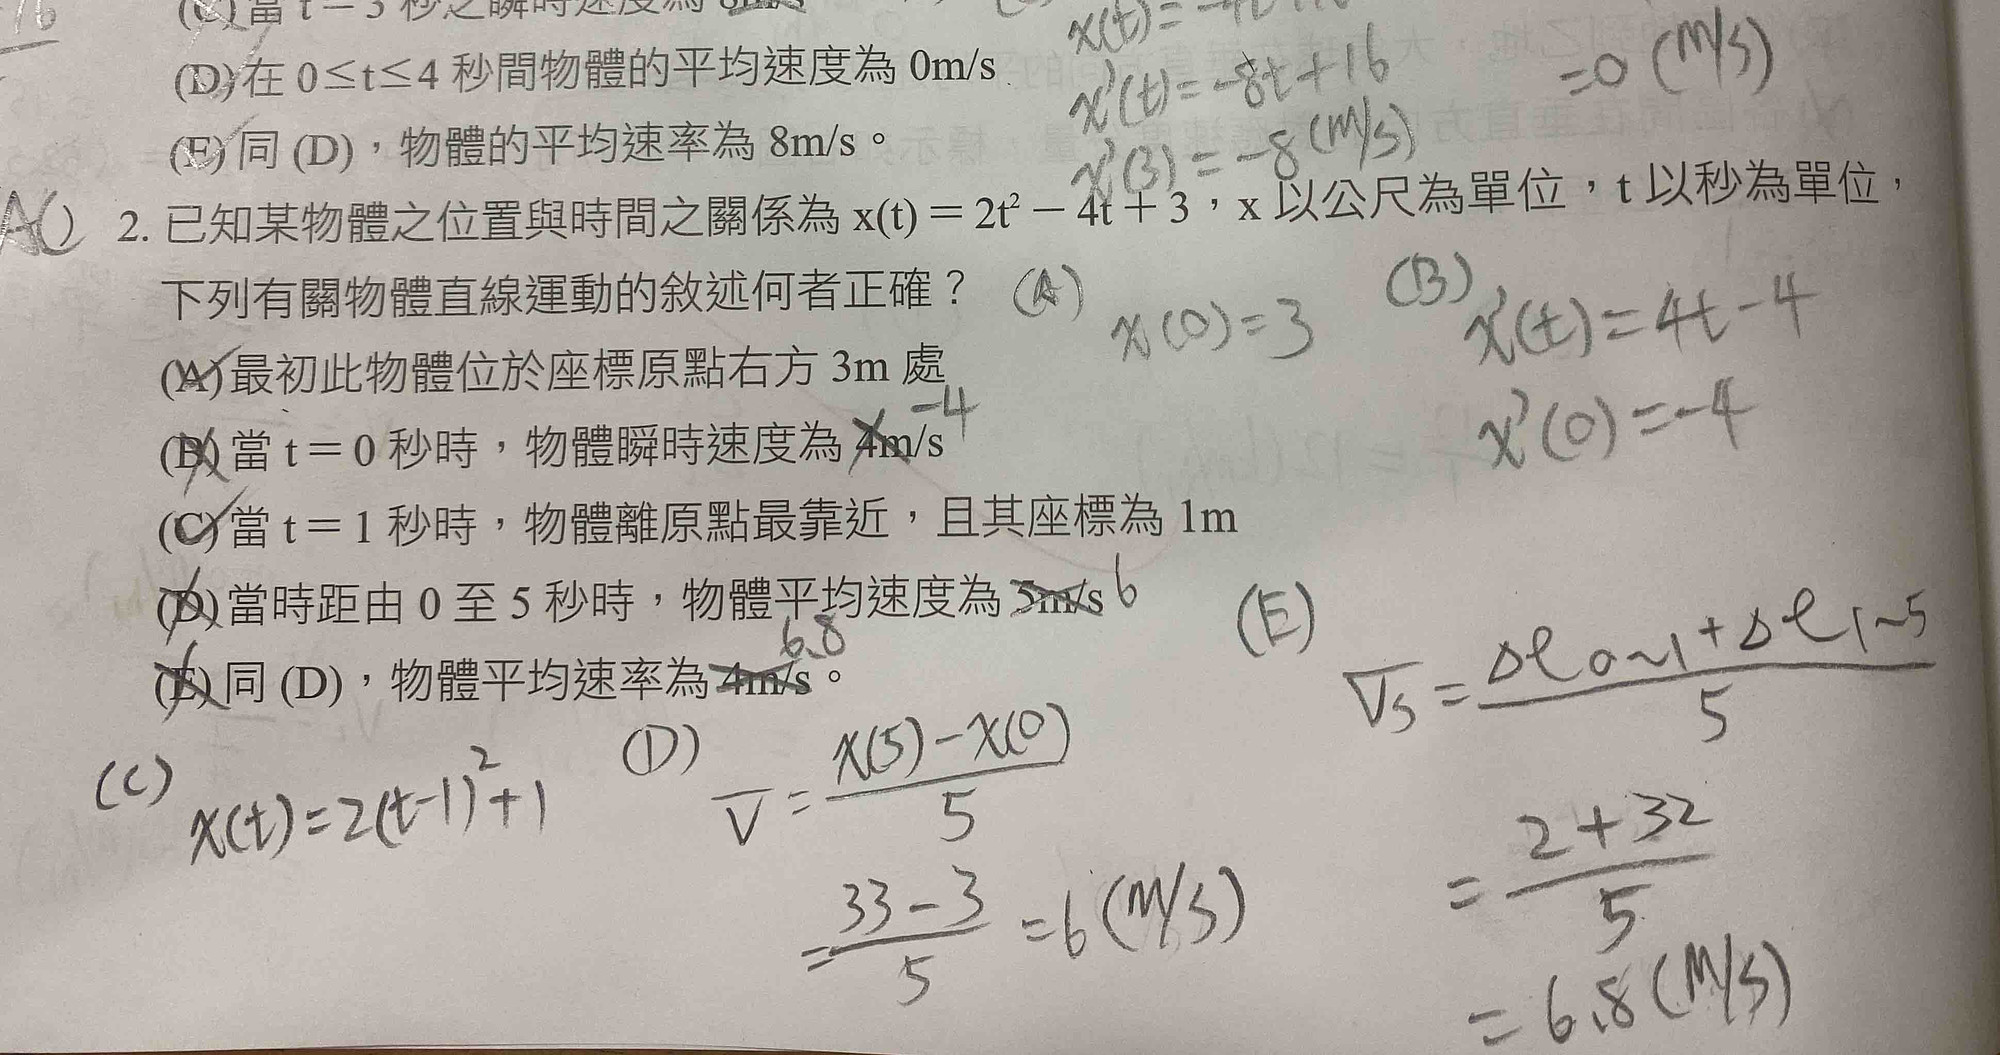 (C) 當 t = 3 秒之瞬時速度為 8m/s
x(t) =
(D) 在 0≤t≤4 秒間物體的平均速度為 0m/s
x'(t) = -8t + 16
= 0 (m/s)
(E) 同 (D)，物體的平均速率為 8m/s。
x'(3) = -8 (m/s)
AC
2. 已知某物體之位置與時間之關係為 x(t) = 2t² − 4t + 3，x 以公尺為單位，t 以秒為單位，
下列有關物體直線運動的敘述何者正確？
(A) x(0) = 3
(B) x'(t) = 4t - 4
x'(0) = -4
(A) 最初此物體位於座標原點右方 3m 處
(B) 當 t = 0 秒時，物體瞬時速度為 4m/s -4
(C) 當 t = 1 秒時，物體離原點最靠近，且其座標為 1m
(D) 當時距由 0 至 5 秒時，物體平均速度為 5m/s 6
6.8
(E) 同 (D)，物體平均速率為 4m/s。
(C) x(t) = 2(t-1)² + 1
(D) V̄ = x(5) - x(0) / 5
= 33 - 3 / 5 = 6 (m/s)
(E) V̄s = Δl 0~1 + Δl 1~5 / 5
= 2 + 32 / 5
= 6.8 (m/s)